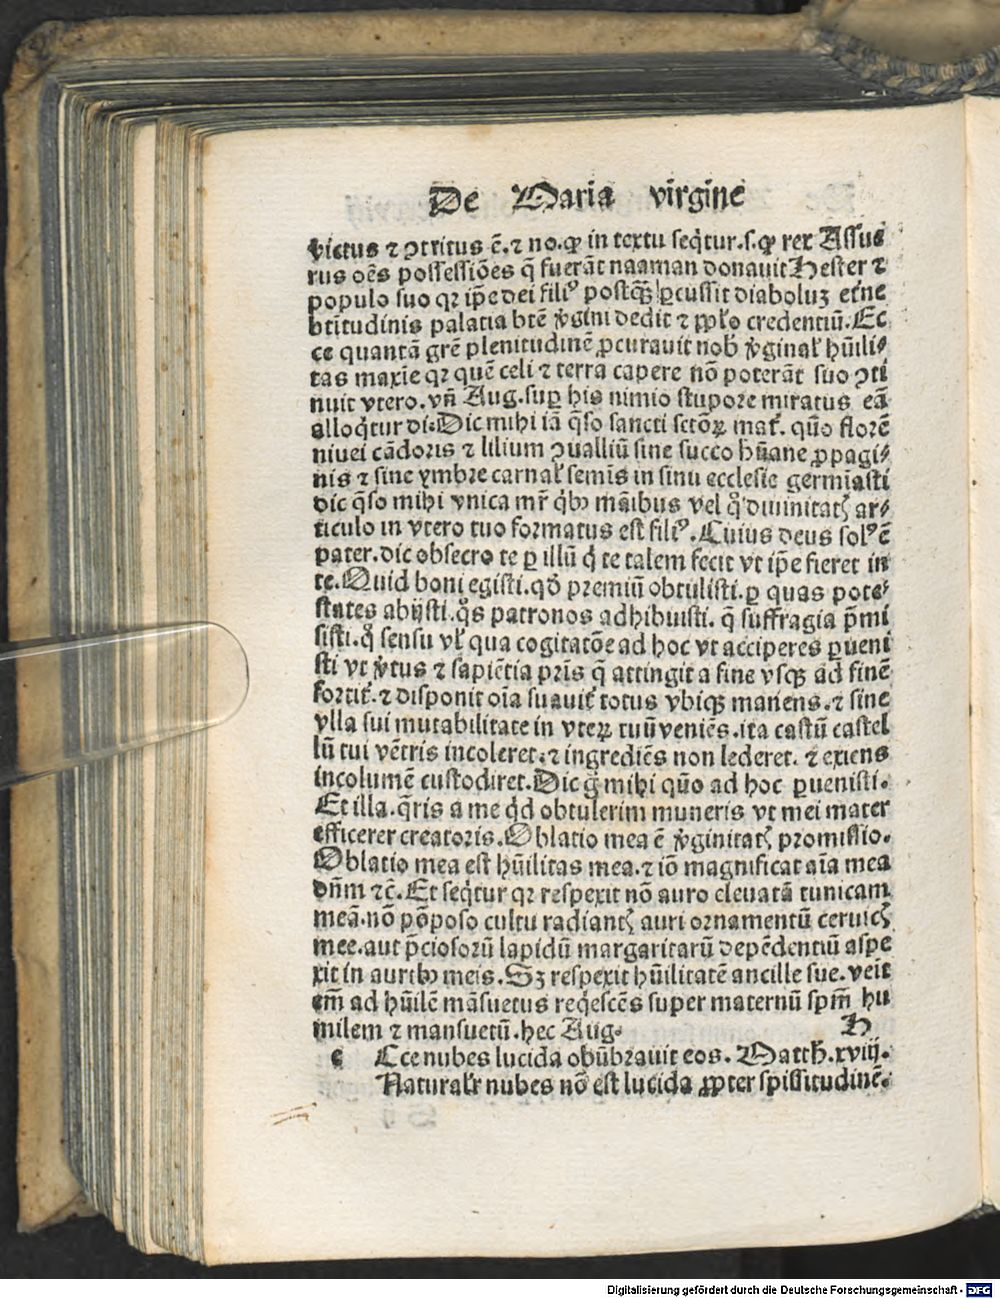 De Maria virgine
victus ⁊ ꝯtritus ē. ⁊ no. ꝙ in textu seq̄tur. s. ꝙ rex Assue
rus oēs possessiōes q̄ fuerāt naaman donauit Hester ⁊
populo suo qꝛ ip̄e dei filiꝰ postꝙ̄ ꝑcussit diaboluʒ et̄ne
btītudinis palatia btē v̄gini dedit ⁊ ppl̄o credentiū. Ec
ce quantā gr̄e plenitudinē ꝓcurauit nob̄ v̄ginal̄ hūili⸗
tas maxīe qꝛ quē celi ⁊ terra capere nō poterāt suo ꝯti
nuit vtero. vn̄ Aug. suꝑ his nimio stupore miratus eā
alloq̄tur di. Dic mihi iā q̄so sancti sctōꝝ mat̄. quō florē
niuei cādoris ⁊ lilium ꝯualliū sine succo hūane ꝓpagi⸗
nis ⁊ sine ymbre carnal̄ semīs in sinu ecclesie germiasti
dic q̄so mihi vnica mr̄ qͥbꝫ māibus vel qͦ diuinitatꝭ ar⸗
ticulo in vtero tuo formatus est filiꝰ. Cuius deus solꝰ ē
pater. dic obsecro te ꝑ illū qͥ te talem fecit vt ip̄e fieret in
te. Quid boni egisti. qd̄ premiū obtulisti. ꝑ quas pote⸗
states abijsti. qͦs patronos adhibuisti. q̄ suffragia p̄mi
sisti. qͦ sensu vl̄ qua cogitatōe ad hoc vt acciperes ꝑueni
sti vt v̄tus ⁊ sapiētia pr̄is q̄ attingit a fine vsqꝫ ad finē
fortit̄. ⁊ disponit oīa suauit̄ totus vbiqꝫ manens. ⁊ sine
vlla sui mutabilitate in vteꝝ tuū veniēs. ita castū castel
lū tui vētris incoleret. ⁊ ingrediēs non lederet. ⁊ exiens
incolumē custodiret. Dic gͦ mihi quō ad hoc ꝑuenisti.
Et illa. q̄ris a me qͥd obtulerim muneris vt mei mater
efficerer creatoris. Oblatio mea ē v̄ginitatꝭ promissio.
Oblatio mea est hūilitas mea. ⁊ iō magnificat aīa mea
dn̄m ⁊c̄. Et seq̄tur qꝛ respexit nō auro eleuatā tunicam
meā. nō pōposo cultu radiantꝭ auri ornamentū ceruicꝭ
mee. aut p̄ciosorū lapidū margaritarū depēdentiū aspe
xit in auribꝫ meis. Sʒ respexit hūilitatē ancille sue. veīt
em̄ ad hūilē māsuetus reqͥescēs super maternū spm̄ hu
milem ⁊ mansuetū. hec Aug. H
e Cce nubes lucida obūbrauit eos. Matth̄. xviij.
Natural̄r nubes nō est lucida ꝓpter spissitudinē.
Digitalisierung gefördert durch die Deutsche Forschungsgemeinschaft - DFG